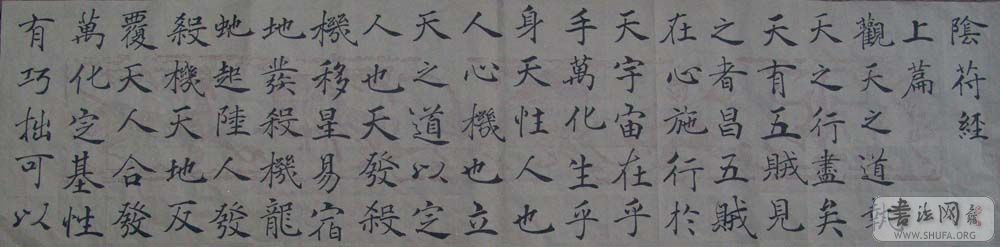 陰苻經
上篇
觀天之道
天之行盡矣
天有五賊見
之者昌五賊
在心施行於
天宇宙在乎
手萬化生乎
身天性人也
人心機也立
天之道以定
人也天發殺
機移星易宿
地發殺機龍
虵起陸人發
殺機天地反
覆天人合發
萬化定基性
有巧拙可以
书法网
WWW.SHUFA.ORG